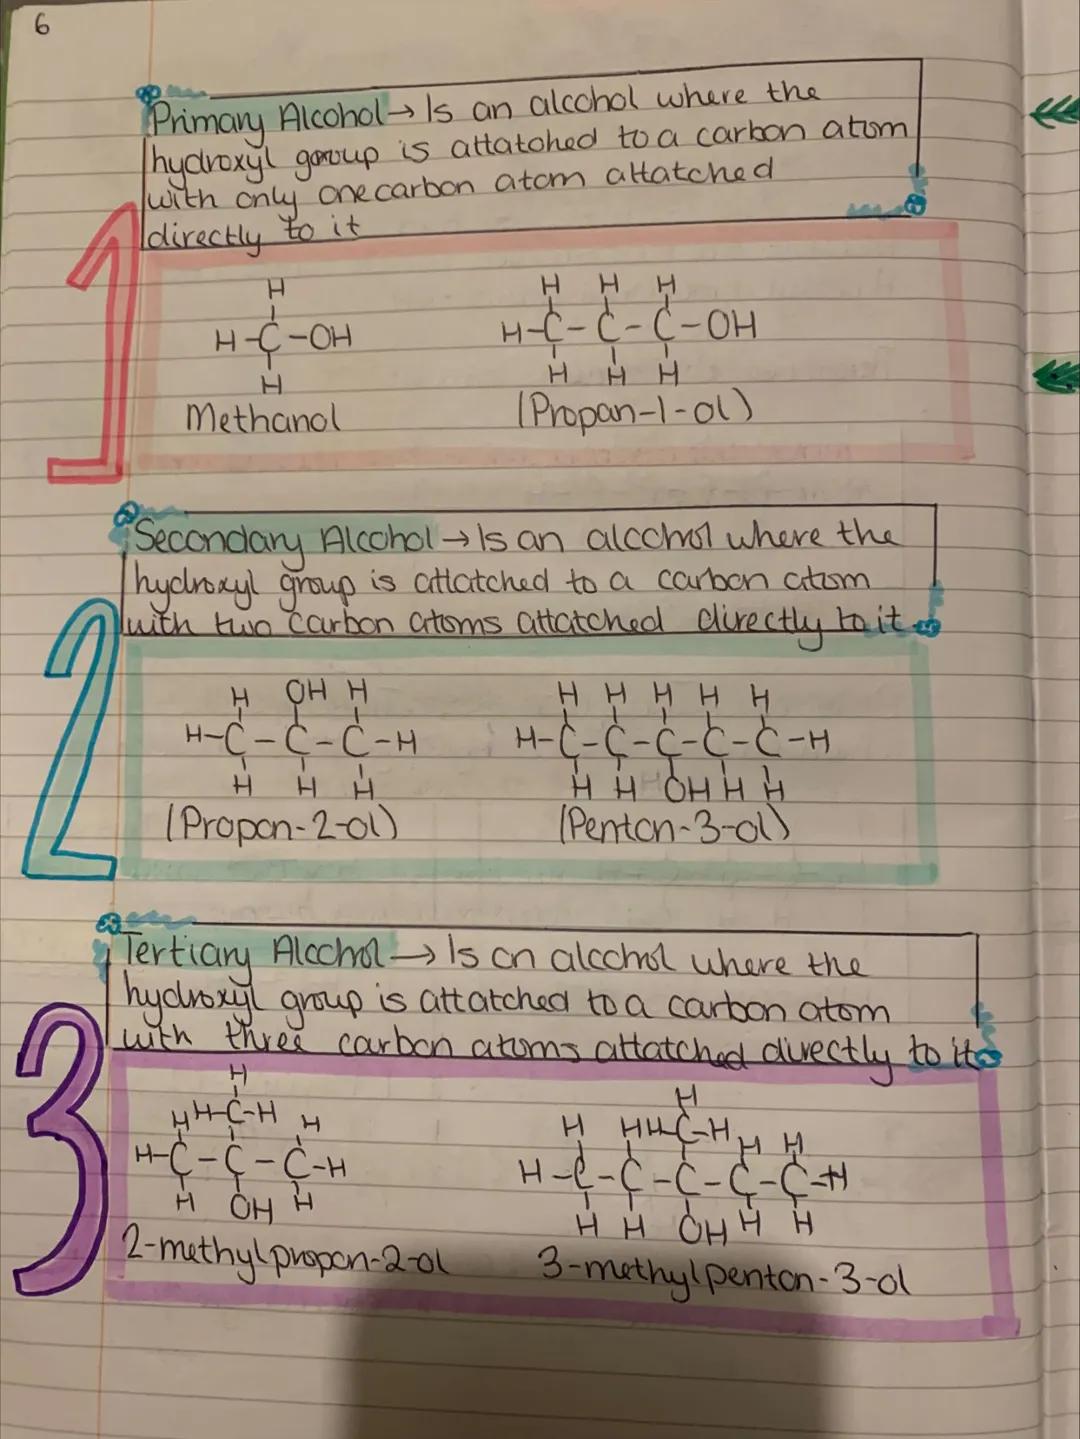 6
Primary Alcohol → Is an alcohol where the
hydroxyl group is attatched to a carbon atom
with only one carbon atom attatched
directly to it
1
H H H H
H-C-OH H-C-C-C-OH
H H H H
Methanol (Propan-1-ol)
Secondary Alcohol → Is an alcohol where the
hydroxyl group is attatched to a carbon atom
with two carbon atoms attatched directly to it
2
H OH H H H H H H
H-C-C-C-H H-C-C-C-C-C-H
H H H H H OH H H
(Propan-2-ol) (Pentan-3-ol)
Tertiary Alcohol → Is an alcohol where the
hydroxyl group is attatched to a carbon atom
with three carbon atoms attatched directly to it
3
H H
H H-C-H H H H H-C-H H H
H-C-C-C-H H-C-C-C-C-C-H
H OH H H H OH H H
2-methylpropan-2-ol 3-methylpentan-3-ol